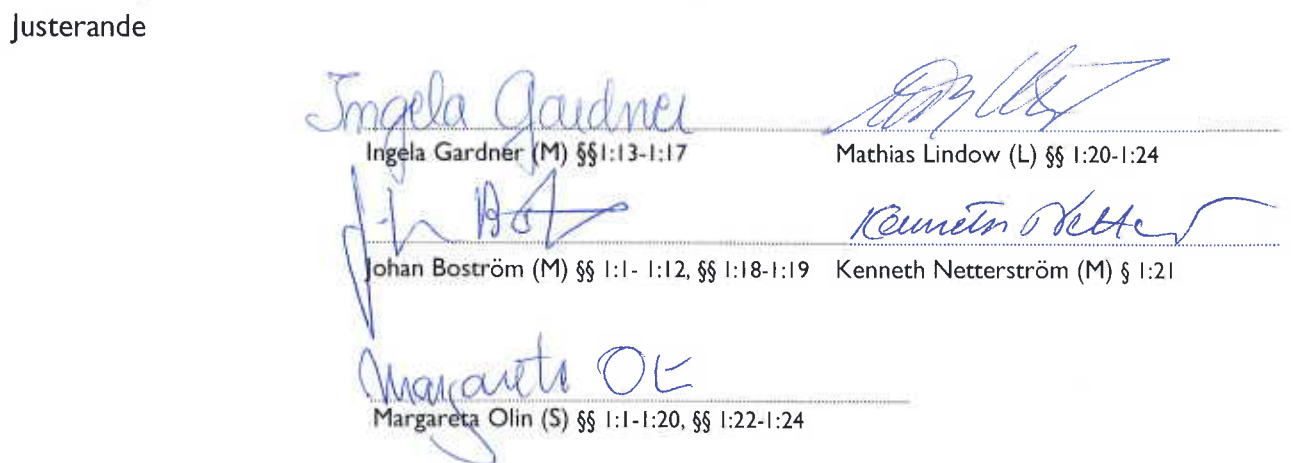 Justerande
Ingela Gardner
Ingela Gardner (M) §§1:13-1:17
Mathias Lindow (L) §§ 1:20-1:24
Johan Boström (M) §§ 1:1- 1:12, §§ 1:18-1:19
Kenneth Netterström (M) § 1:21
Margareta
Margareta Olin (S) §§ 1:1-1:20, §§ 1:22-1:24